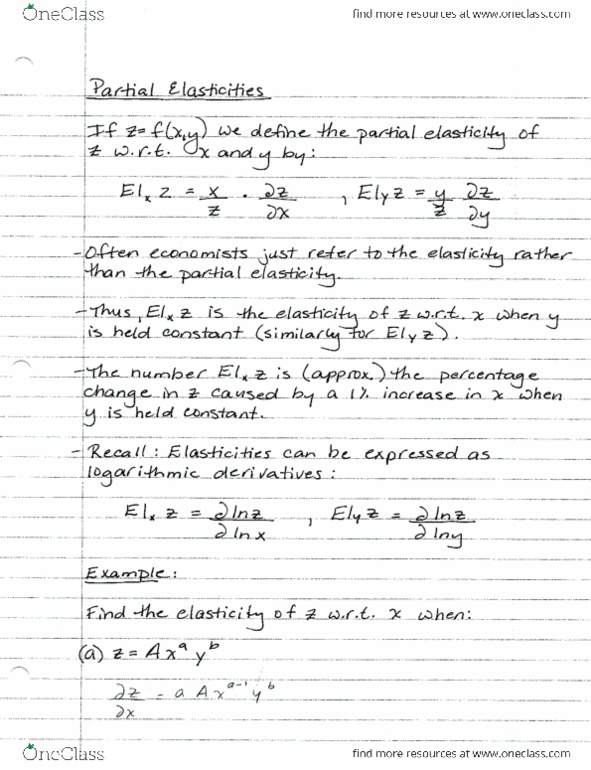 OneClass find more resources at www.oneclass.com
Partial Elasticities
If z=f(x,y) we define the partial elasticity of
z w.r.t. x and y by:
Elₓ z = x/z · ∂z/∂x , El_y z = y/z ∂z/∂y
- Often economists just refer to the elasticity rather
than the partial elasticity.
- Thus, Elₓ z is the elasticity of z w.r.t. x when y
is held constant (similarly for El_y z).
- The number Elₓ z is (approx.) the percentage
change in z caused by a 1% increase in x when
y is held constant.
- Recall: Elasticities can be expressed as
logarithmic derivatives:
Elₓ z = ∂ ln z/∂ ln x , El_y z = ∂ ln z/∂ ln y
Example:
Find the elasticity of z w.r.t. x when:
(a) z = A xᵃ yᵇ
∂z/∂x = a A xᵃ⁻¹ yᵇ
OneClass find more resources at www.oneclass.com